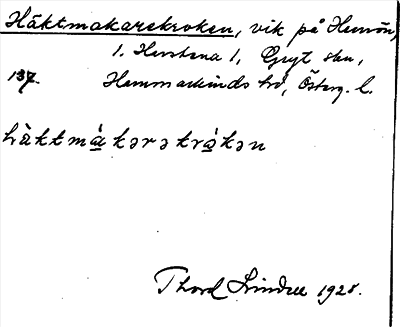 Häktmakarekroken, vik på Husön,
1. Hersbena 1, Gryt sn,
137. Hammarkinds hd, Österg. l.
häktmàkərəkrókən
Thord Lindell 1928.